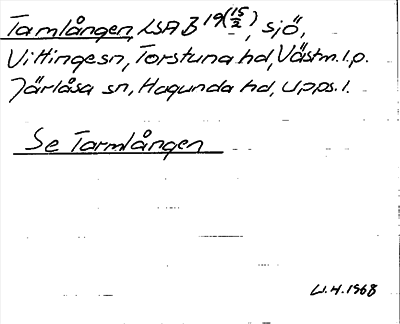 Tamlången, LSA B 19(15/2), sjö,
Vittinge sn, Torstuna hd, Västm. l.p.
Järlåsa sn, Hagunda hd, Upps. l.
Se Tarmlången
W.H. 1968